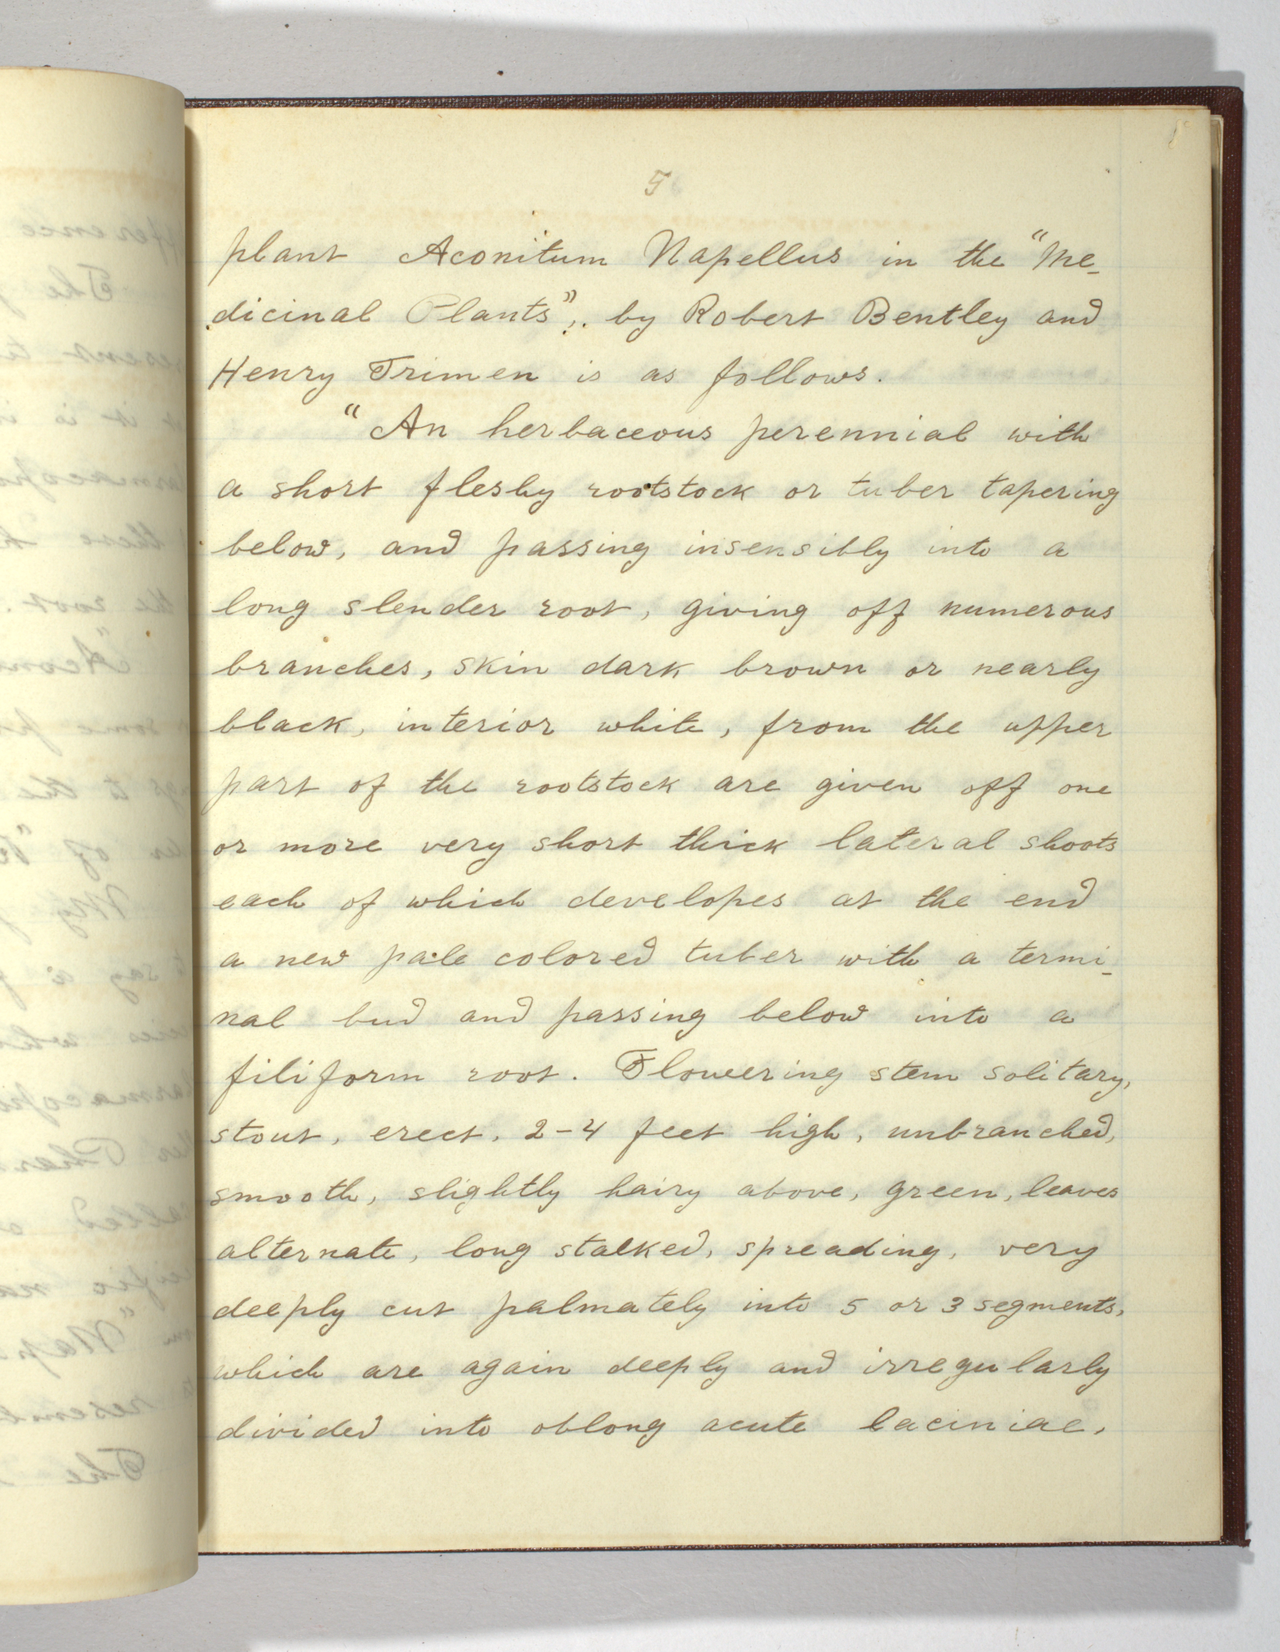 5
plant Aconitum Napellus in the "Me-
dicinal Plants", by Robert Bentley and
Henry Trimen is as follows.
"An herbaceous perennial with
a short fleshy rootstock or tuber tapering
below, and passing insensibly into a
long slender root, giving off numerous
branches, skin dark brown or nearly
black, interior white, from the upper
part of the rootstock are given off one
or more very short thick lateral shoots
each of which developes at the end
a new pale colored tuber with a termi-
nal bud and passing below into a
filiform root. Flowering stem solitary,
stout, erect, 2-4 feet high, unbranched,
smooth, slightly hairy above, green, leaves
alternate, long stalked, spreading, very
deeply cut palmately into 5 or 3 segments,
which are again deeply and irregularly
divided into oblong acute laciniae,